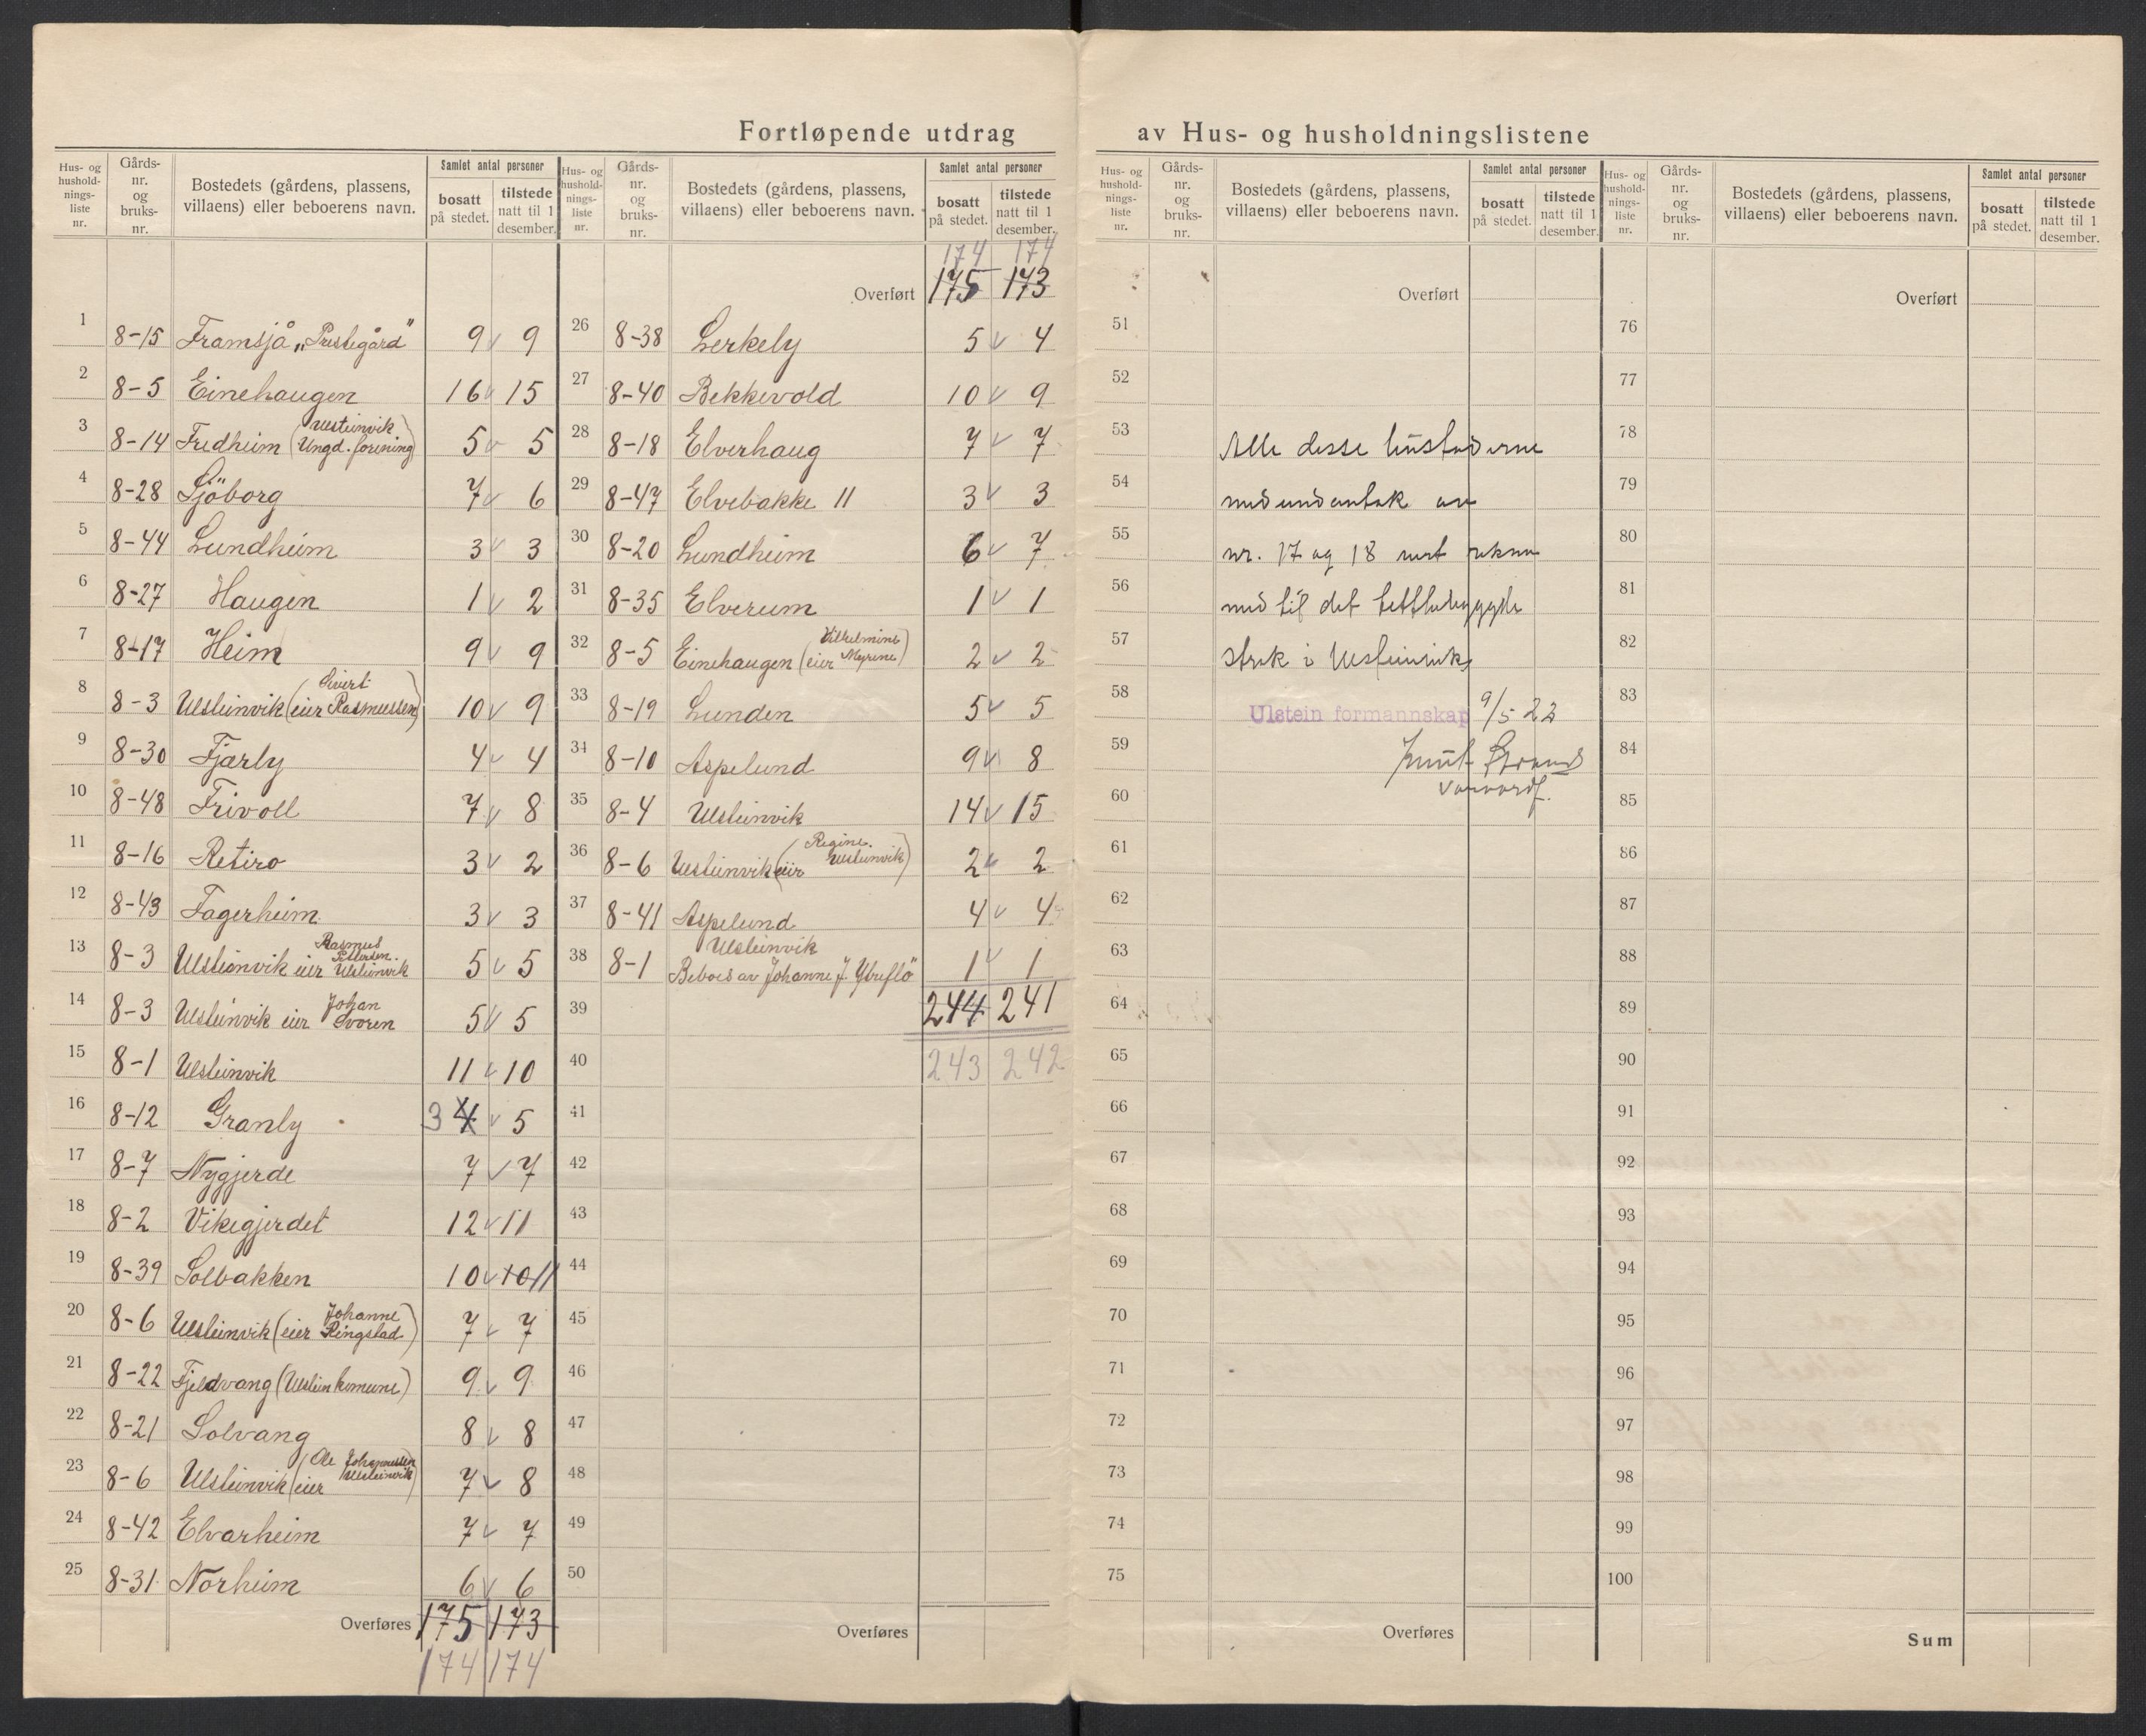 Fortløpende utdrag av Hus- og husholdningslistene
Hus- og husholdnings-liste nr. | Gårds-nr. og bruks-nr. | Bostedets (gårdens, plassens, villaens) eller beboerens navn. | Samlet antal personer | bosatt på stedet. | tilstede natt til 1 desember.
1 8-15 Framsjå „Prestegård" 9 v 9
2 8-5 Einehaugen 16 v 15
3 8-14 Fredheim (Ulsteinvik Ungd. forening) 5 v 5
4 8-28 Sjöborg 7 v 6
5 8-44 Lundheim 3 v 3
6 8-27 Haugen 1 v 2
7 8-17 Heim 9 v 9
8 8-3 Ulsteinvik (eier Sivert Rasmussen) 10 v 9
9 8-30 Fjærly 4 v 4
10 8-48 Frivoll 7 v 8
11 8-16 Retiro 3 v 2
12 8-43 Fagerheim 3 v 3
13 8-3 Ulsteinvik eier Rasmus Pettersen Ulsteinvik 5 v 5
14 8-3 Ulsteinvik eier Johan Svoren 5 v 5
15 8-1 Ulsteinvik 11 v 10
16 8-12 Granly 3 4 v 5
17 8-7 Nygjerde 7 v 7
18 8-2 Vikegjerdet 12 v 11
19 8-39 Solbakken 10 v 10 11
20 8-6 Ulsteinvik (eier Johanne Ringstad) 7 v 7
21 8-22 Fjeldvang (Ulstein komune) 9 v 9
22 8-21 Solvang 8 v 8
23 8-6 Ulsteinvik (eier Ole Johannessen Ulsteinvik) 7 v 8
24 8-42 Elvarheim 7 v 7
25 8-31 Norheim 6 v 6
Overføres 175 173
174 174
Hus- og husholdnings-liste nr. | Gårds-nr. og bruks-nr. | Bostedets (gårdens, plassens, villaens) eller beboerens navn. | Samlet antal personer | bosatt på stedet. | tilstede natt til 1 desember.
174 174
Overført 175 173
26 8-38 Lerkely 5 v 4
27 8-40 Bekkevold 10 v 9
28 8-18 Elverhaug 7 v 7
29 8-47 Elvebakke II 3 v 3
30 8-20 Lundheim 6 v 7
31 8-35 Elverum 1 v 1
32 8-5 Einehaugen (eier Vilhelmine Myrene) 2 v 2
33 8-19 Lunden 5 v 5
34 8-10 Aspelund 9 v 8
35 8-4 Ulsteinvik 14 v 15
36 8-6 Ulsteinvik (eier Regine Ulsteinvik) 2 v 2
37 8-41 Aspelund 4 v 4
38 8-1 Ulsteinvik Beboes av Johanne J. Ytreflö 1 v 1
39 244 241
40 243 242
41
42
43
44
45
46
47
48
49
50
Overføres
Hus- og husholdnings-liste nr. | Gårds-nr. og bruks-nr. | Bostedets (gårdens, plassens, villaens) eller beboerens navn. | Samlet antal personer | bosatt på stedet. | tilstede natt til 1 desember.
Overført
51
52
53 Alle desse hustaderne
54 med undantak av
55 nr. 17 og 18 vert rekna
56 med til det tettbebyggde
57 strøk i Ulsteinvik
58 Ulstein formannskap 9/5 22
59 Knut Strand
60 varaordf.
61
62
63
64
65
66
67
68
69
70
71
72
73
74
75
Overføres
Hus- og husholdnings-liste nr. | Gårds-nr. og bruks-nr. | Bostedets (gårdens, plassens, villaens) eller beboerens navn. | Samlet antal personer | bosatt på stedet. | tilstede natt til 1 desember.
Overført
76
77
78
79
80
81
82
83
84
85
86
87
88
89
90
91
92
93
94
95
96
97
98
99
100
Sum